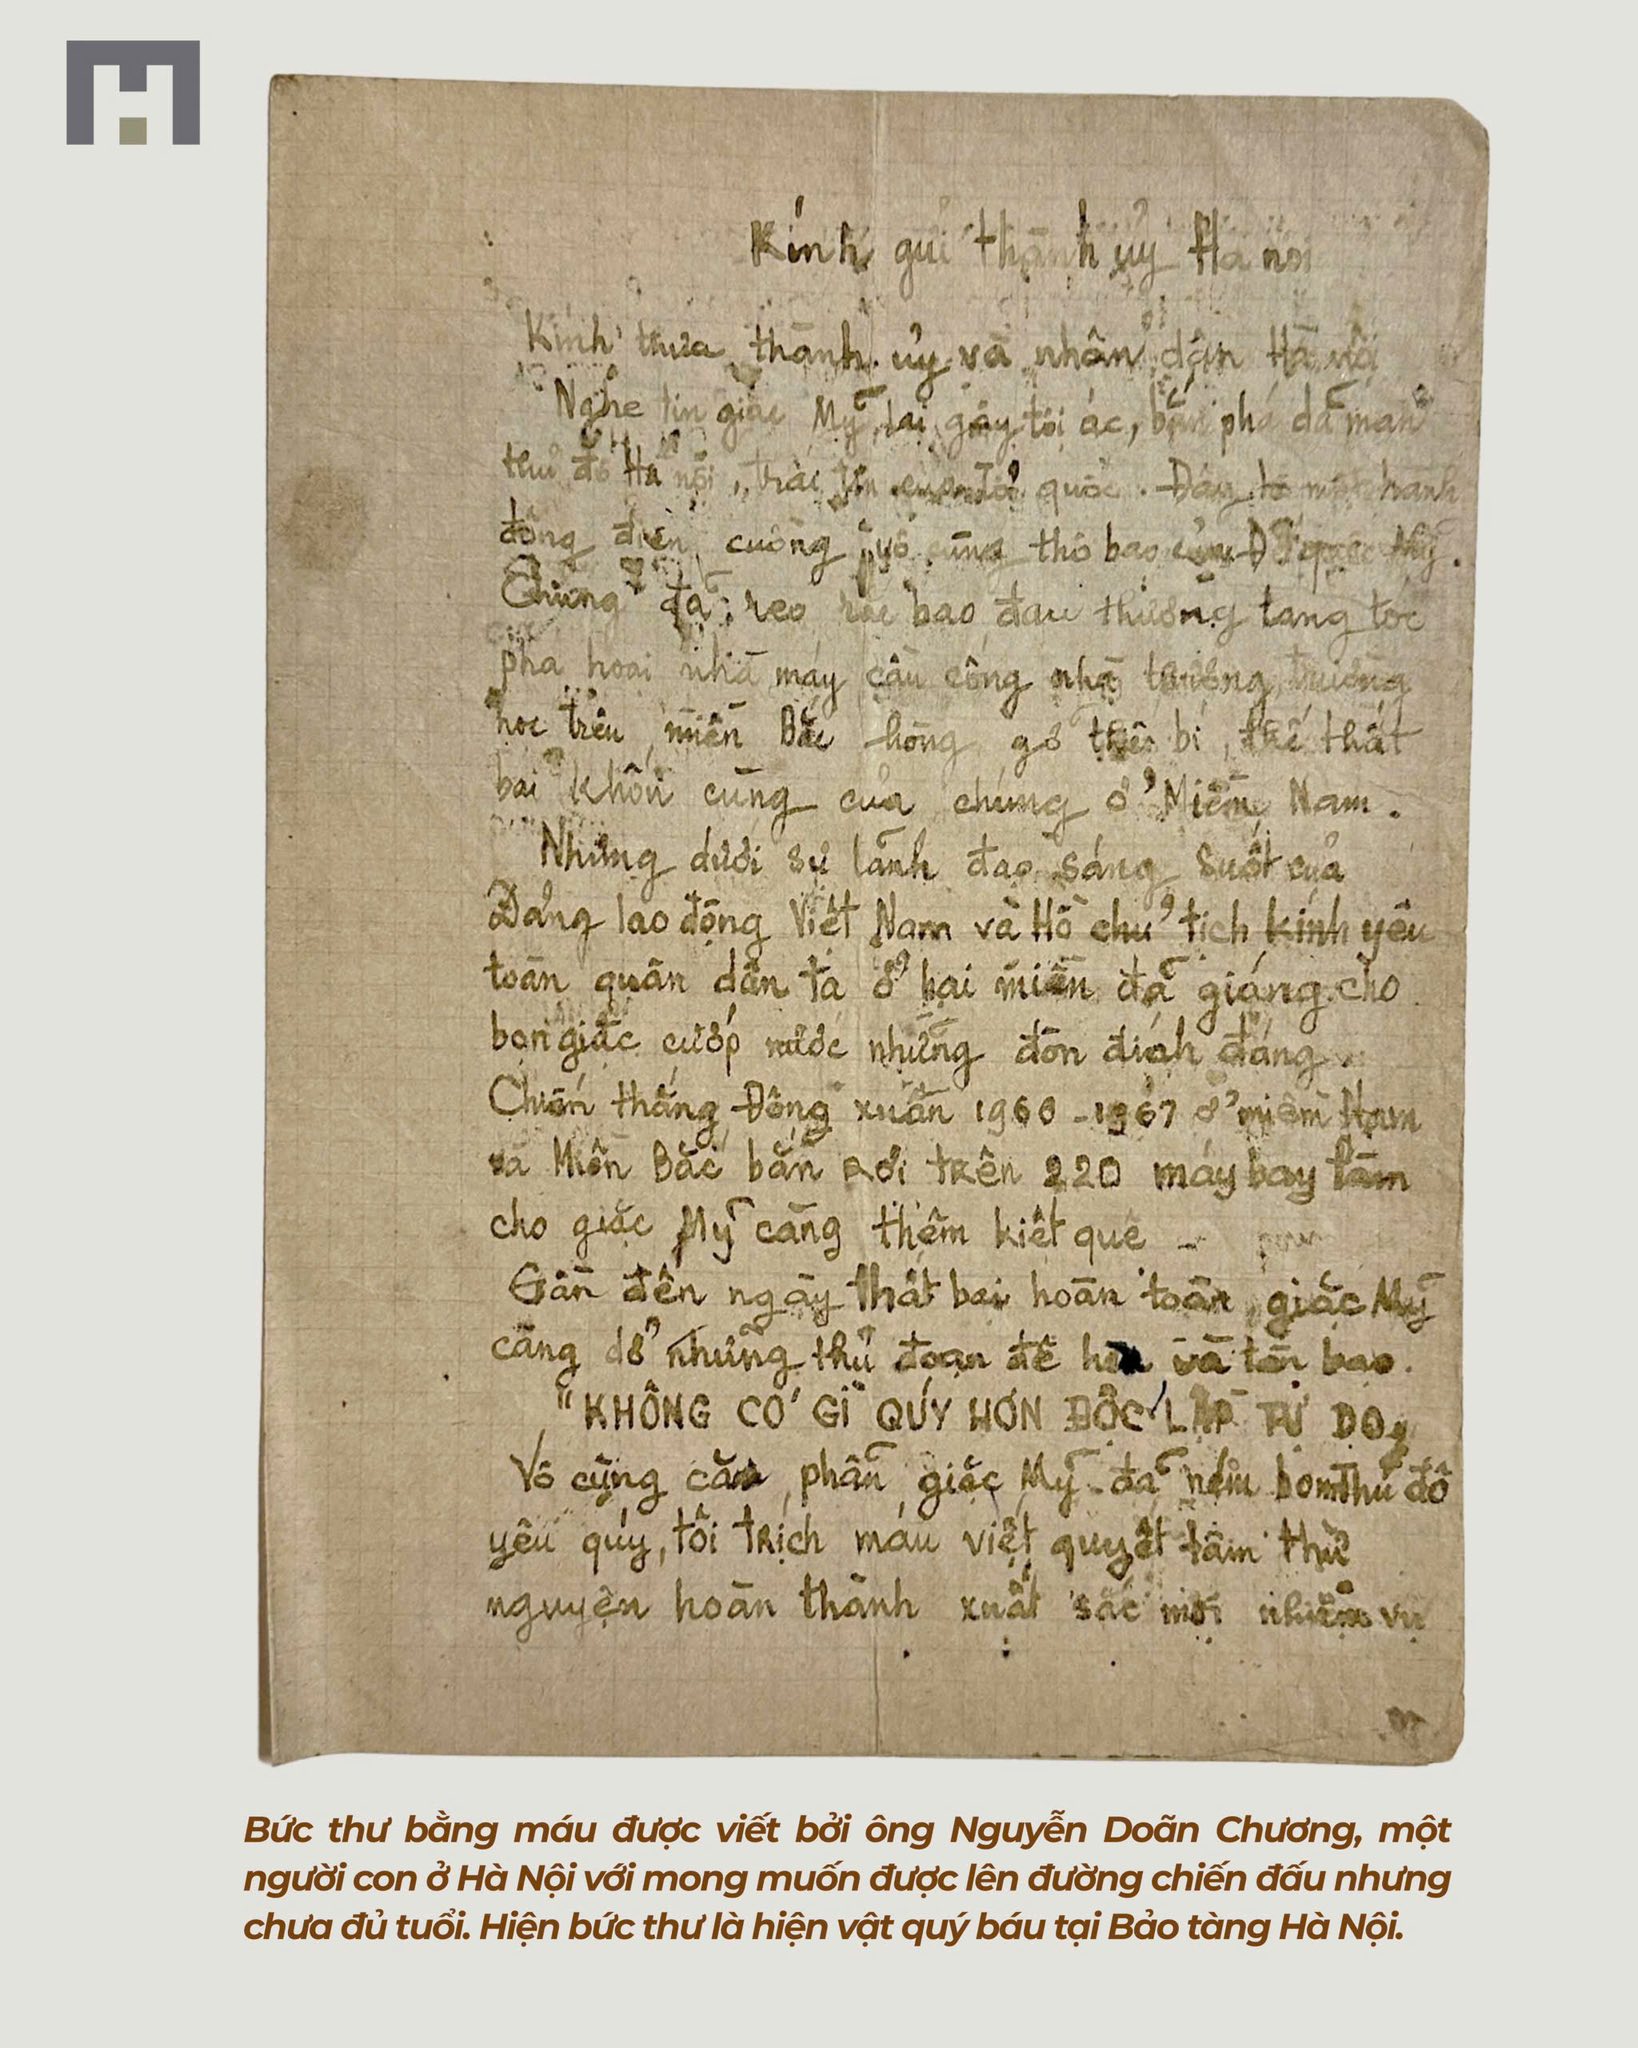 Kính gửi thành ủy Hà nội
Kính thưa thành ủy và nhân dân Hà nội
Nghe tin giặc Mỹ lại gây tội ác, bắn phá dã man
thủ đô Hà nội, trái tim của Tổ quốc. Đây là một hành
động điên cuồng vô cùng thô bạo của Đế quốc Mỹ.
Chúng đã reo rắc bao đau thương tang tóc
phá hoại nhà máy cầu cống nhà trường
học trên miền Bắc hòng gỡ thế bí, thế thất
bại khốn cùng của chúng ở Miền Nam.
Nhưng dưới sự lãnh đạo sáng suốt của
Đảng lao động Việt Nam và Hồ chủ tịch kính yêu
toàn quân dân ta ở hai miền đã giáng cho
bọn giặc cướp nước những đòn đích đáng.
Chiến thắng Đông xuân 1966 - 1967 ở miền Nam
và Miền Bắc bắn rơi trên 220 máy bay làm
cho giặc Mỹ càng thêm kiệt quệ -
Gần đến ngày thất bại hoàn toàn, giặc Mỹ
càng dở những thủ đoạn đê hèn và tàn bạo.
"KHÔNG CÓ GÌ QUÝ HƠN ĐỘC LẬP TỰ DO"
Vô cùng căm phẫn giặc Mỹ đã ném bom thủ đô
yêu quý, tôi trích máu viết quyết tâm thư
nguyện hoàn thành xuất sắc mọi nhiệm vụ
Bức thư bằng máu được viết bởi ông Nguyễn Doãn Chương, một
người con ở Hà Nội với mong muốn được lên đường chiến đấu nhưng
chưa đủ tuổi. Hiện bức thư là hiện vật quý báu tại Bảo tàng Hà Nội.